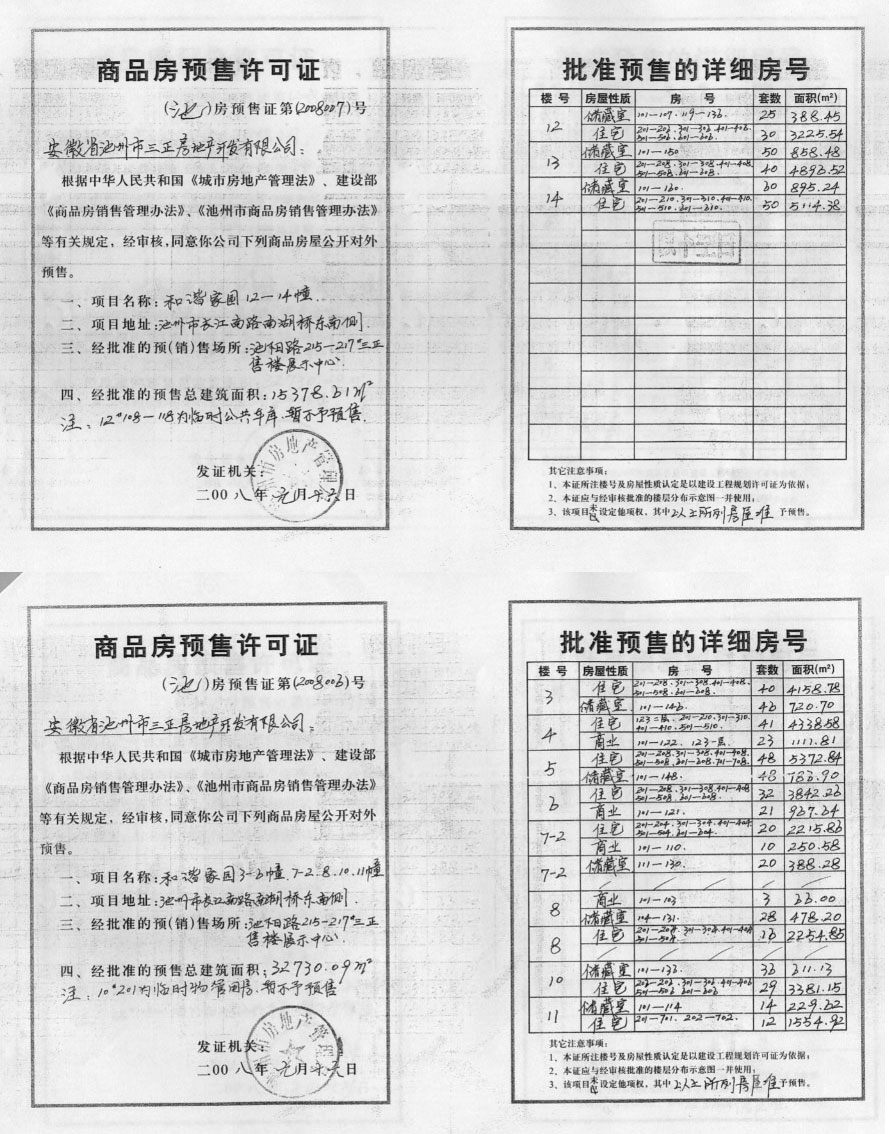 商品房预售许可证
(池)房预售证第(2008007)号
安徽省池州市三正房地产开发有限公司:
根据中华人民共和国《城市房地产管理法》、建设部
《商品房销售管理办法》、《池州市商品房销售管理办法》
等有关规定,经审核,同意你公司下列商品房屋公开对外
预售。
一、项目名称:和谐家园12—14幢.
二、项目地址:池州市长江南路南湖桥东南侧.
三、经批准的预(销)售场所:池阳路215—217#三正
售楼展示中心.
四、经批准的预售总建筑面积:15378.61m²
注:12#108—118为临时公共车库.暂不予预售.
发证机关:
二00八年元月十六日
批准预售的详细房号
楼号 房屋性质 房号 套数 面积(m²)
12 储藏室 101—107.119—136. 25 388.45
住宅 201—206.301—306.401—406. 501—506.601—606. 30 3225.54
13 储藏室 101—150 50 858.48
住宅 201—208.301—308.401—408. 501—508.601—608. 40 4896.52
14 储藏室 101—160. 60 895.24
住宅 201—210.301—310.401—410. 501—510.601—610. 50 5114.38
其它注意事项:
1、本证所注楼号及房屋性质认定是以建设工程规划许可证为依据;
2、本证应与经审核批准的楼层分布示意图一并使用;
3、该项目未设定他项权,其中以上所列房屋准予预售。
商品房预售许可证
(池)房预售证第(2008006)号
安徽省池州市三正房地产开发有限公司:
根据中华人民共和国《城市房地产管理法》、建设部
《商品房销售管理办法》、《池州市商品房销售管理办法》
等有关规定,经审核,同意你公司下列商品房屋公开对外
预售。
一、项目名称:和谐家园3—6幢.7-2.8.10.11幢
二、项目地址:池州市长江南路南湖桥东南侧.
三、经批准的预(销)售场所:池阳路215—217#三正
售楼展示中心.
四、经批准的预售总建筑面积:32730.09m²
注:10#201为临时物管用房.暂不予预售
发证机关:
二00八年元月十六日
批准预售的详细房号
楼号 房屋性质 房号 套数 面积(m²)
3 住宅 201—208.301—308.401—408. 501—508.601—608. 40 4158.78
储藏室 101—146. 46 720.70
4 住宅 123二层.201—210.301—310. 401—410.501—510. 41 4338.58
商业 101—122.123一层. 23 1111.81
5 住宅 201—208.301—308.401—408. 501—508.601—608.701—708. 48 5372.84
储藏室 101—148. 48 786.90
6 住宅 201—208.301—308.401—408 501—508.601—608. 32 3842.26
商业 101—121. 21 967.64
7-2 住宅 201—204.301—304.401—404 501—504.601—604. 20 2215.86
商业 101—110. 10 250.58
7-2 储藏室 111—130. 20 388.28
8 商业 101—103 3 66.00
储藏室 104—131. 28 478.20
8 住宅 201—204.301—304.401—404 501—504. 16 2254.85
10 储藏室 101—136. 36 611.13
住宅 202—206.301—306.401—406 501—506.601—606 29 3381.15
11 储藏室 101—114 14 229.62
住宅 201—701.202—702. 12 1554.92
其它注意事项:
1、本证所注楼号及房屋性质认定是以建设工程规划许可证为依据;
2、本证应与经审核批准的楼层分布示意图一并使用;
3、该项目未设定他项权,其中以上所列房屋准予预售。